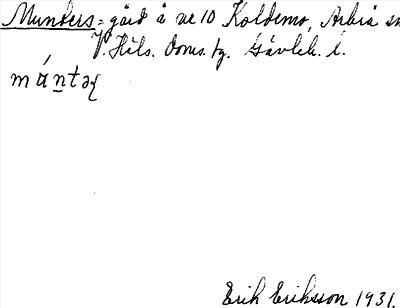 Munders = gård å nr 10 Koldemo, Arbrå sn
V. Häls. doms. tg. Gävleb. l.
mántəɼ
Erik Eriksson 1931.